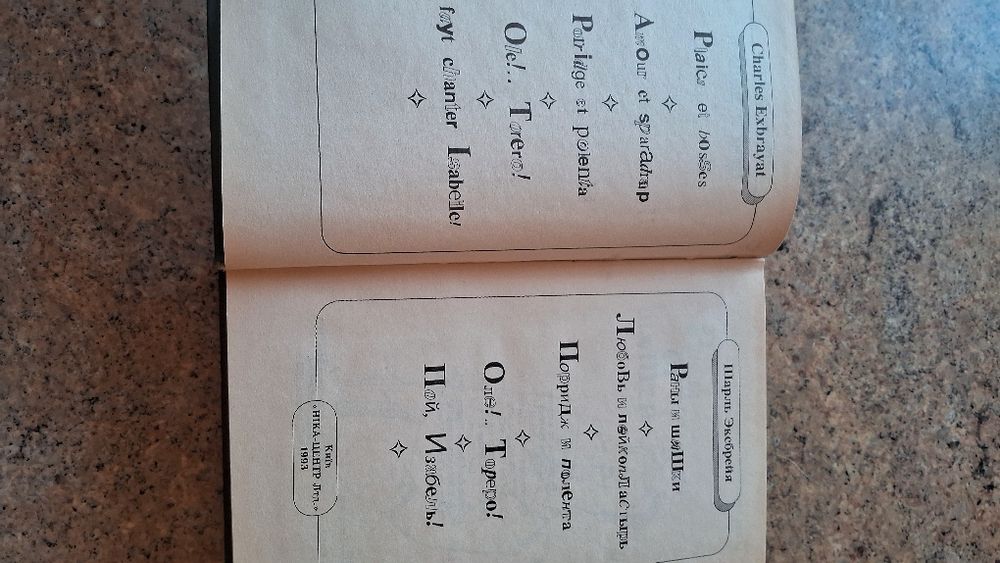 Charles Exbrayat
Plaies et bosses
Amour et sparadrap
Porridge et polenta
Ole!.. Torero!
fayt chanter Isabelle!
Шарль Эксбрейя
Раны и шишки
Любовь и лейкопластырь
Порридж и полента
Оле!.. Тореро!
Пой, Изабель!
Київ
«НІКА-ЦЕНТР Лтд.»
1993